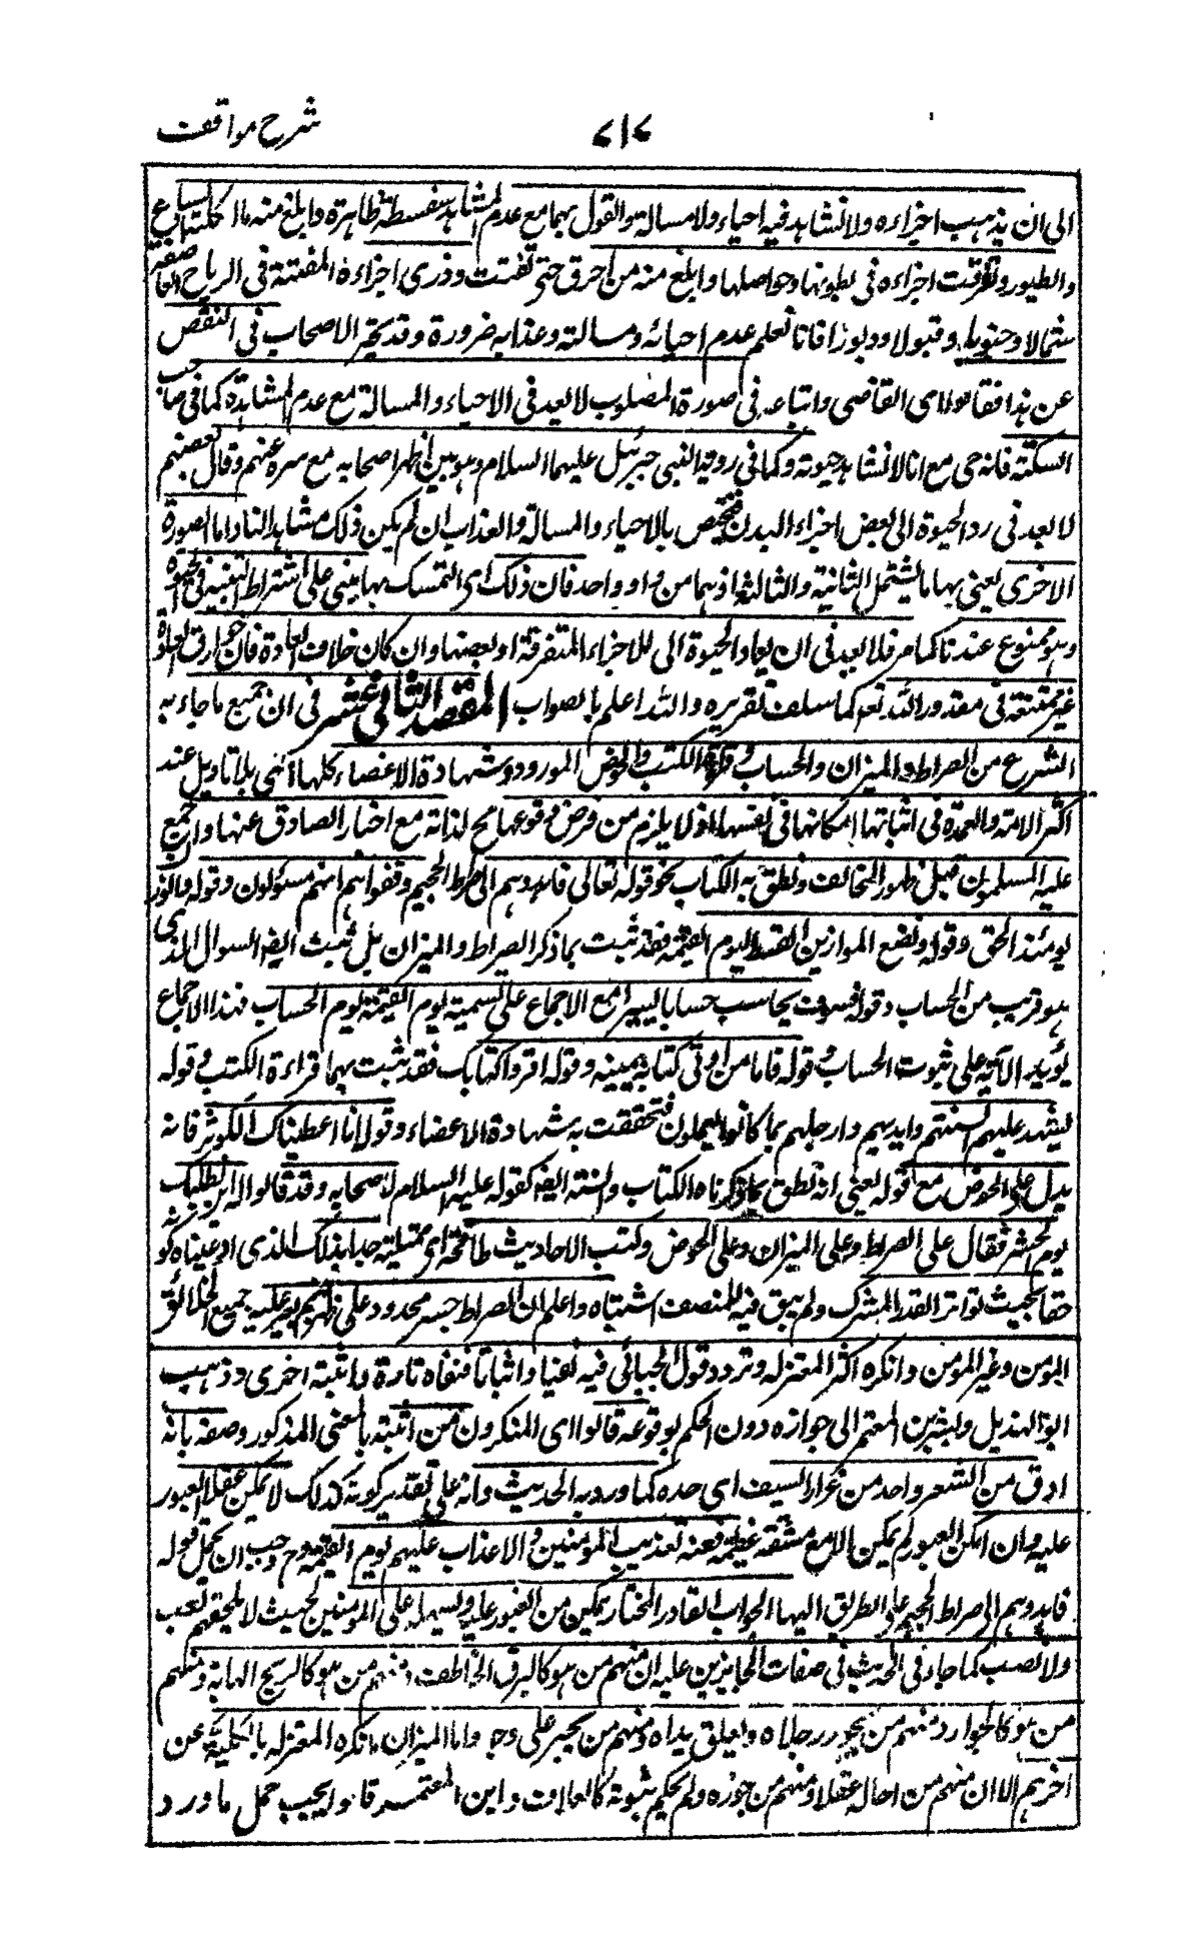 شرح مواقف
٧١٧
الى ان يذهب اجزاءه ولا نشاهد فيه احياء ولا مسالة والقول بهما مع عدم المشاهد سفسطة ظاهرة وابلغ منه من اكلته السباع
والطيور وتفرقت اجزاءه فى بطونها وحواصلها وابلغ منه من احرق حتى تفتت وذرى اجزاءه المفتتة فى الرياح العاصفة
شمالا وجنوبا وقبولا ودبورا فانا نعلم عدم احيائه ومسالته وعذابه ضرورة وقد تحير الاصحاب فى التفصى
عن هذا فقالوا اى القاضى واتباعه فى صورة المصلوب لا بعد فى الاحياء والمسالة مع عدم المشاهدة كما فى صاحب
السكتة فانه حى مع انا لا نشاهد حيوته وكما فى روية النبى جبرئيل عليهما السلام وهو بين اظهر اصحابه مع ستره عنهم وقال بعضهم
لا بعد فى رد الحيوة الى بعض اجزاء البدن فيختص بالاحياء والمسالة والعذاب ان لم يكن ذلك مشاهدا لنا واما الصورة
الاخرى يعنى بها ما يشتمل الثانية والثالثة اذ هما من واد واحد فان ذلك اى التمسك بها مبنى على اشتراط البنية فى الحيوة
وهو ممنوع عندنا كما مر فلا بعد فى ان يعاد الحيوة الى الاجزاء المتفرقة او بعضها وان كان خلاف العادة فان خوارق العادة
غير ممتنعة فى مقدور الله تعم كما سلف تقريره والله اعلم بالصواب المقصد الثانى عشر فى ان جميع ما جاء به
الشرع من الصراط والميزان والحساب وقراءة الكتب والحوض المورود وشهادة الاعضاء كلها حق بلا تاويل عند
اكثر الامة والعمدة فى اثباتها امكانها فى نفسها اذ لا يلزم من فرض وقوعها مح لذاته مع اخبار الصادق عنها واجمع
عليه المسلمون قبل ظهور المخالف ونطق به الكتاب نحو قوله تعالى فاهدوهم الى صراط الجحيم وقفوهم انهم مسؤلون وقوله والوزن
يومئذ الحق وقوله ونضع الموازين القسط ليوم القيمة فقد ثبت بما ذكر الصراط والميزان بل ثبت ايضا السوال الذى
هو قريب من الحساب وقوله فسوف يحاسب حسابا يسيرا مع الاجماع على تسمية يوم القيمة يوم الحساب فهذا الاجماع
يؤيد الآية على ثبوت الحساب وقوله فاما من اوتى كتابه بيمينه وقوله اقرء كتابك فقد ثبت بهما قراءة الكتب وقوله
يشهد عليهم السنتهم وايديهم وارجلهم بما كانوا يعملون فتحققت به شهادة الاعضاء وقوله انا اعطيناك الكوثر فانه
يدل على الحوض مع قوله يعنى انه نطق بما ذكرناه الكتاب والسنة ايضا كقوله عليه السلام لاصحابه وقد قالوا له اين نطلبك
يوم الحشر فقال على الصراط وعلى الميزان وعلى الحوض وكتب الاحاديث طافحة اى ممتلية جدا بذلك الذى ادعيناه كونه
حقا بحيث تواتر القدر المشترك ولم يبق فيه للمنصف اشتباه واعلم ان الصراط جسر ممدود على ظهر جهنم يعبر عليه جميع الخلائق
المؤمن وغير المؤمن وانكره اكثر المعتزله وتردد قول الجبائى فيه نفيا واثباتا فنفاه تارة واثبته اخرى وذهب
ابو الهذيل وبشر بن المعتمر الى جوازه دون الحكم بوقوعه قالوا اى المنكرون من اثبته بالمعنى المذكور وصفه بانه
ادق من الشعر واحد من غرار السيف اى حده كما ورد به الحديث وانه على تقدير كونه كذلك لا يمكن عقلا العبور
عليه وان امكن العبور لم يمكن الا مع مشقة عظيمة ففيه تعذيب المؤمنين ولا عذاب عليهم يوم القيمة وح وجب ان يحمل قوله
فاهدوهم الى صراط الجحيم على الطريق اليها الجواب القادر المختار يمكن من العبور عليه ويسهله على المؤمنين بحيث لا يلحقهم تعب
ولا نصب كما جاء فى الحديث فى صفات الجائزين عليه ان منهم من هو كالبرق الخاطف ومنهم من هو كالريح الهابة ومنهم
من هو كالجواد ومنهم من يجوز رجلاه ويعلق يداه ومنهم من يجر على وجهه واما الميزان فانكره المعتزله بالكلية عن
اخرهم الا ان منهم من احاله عقلا ومنهم من جوزه ولم يحكم بثبوته كالعلاف وابن المعتمر قالوا يجب حمل ما ورد